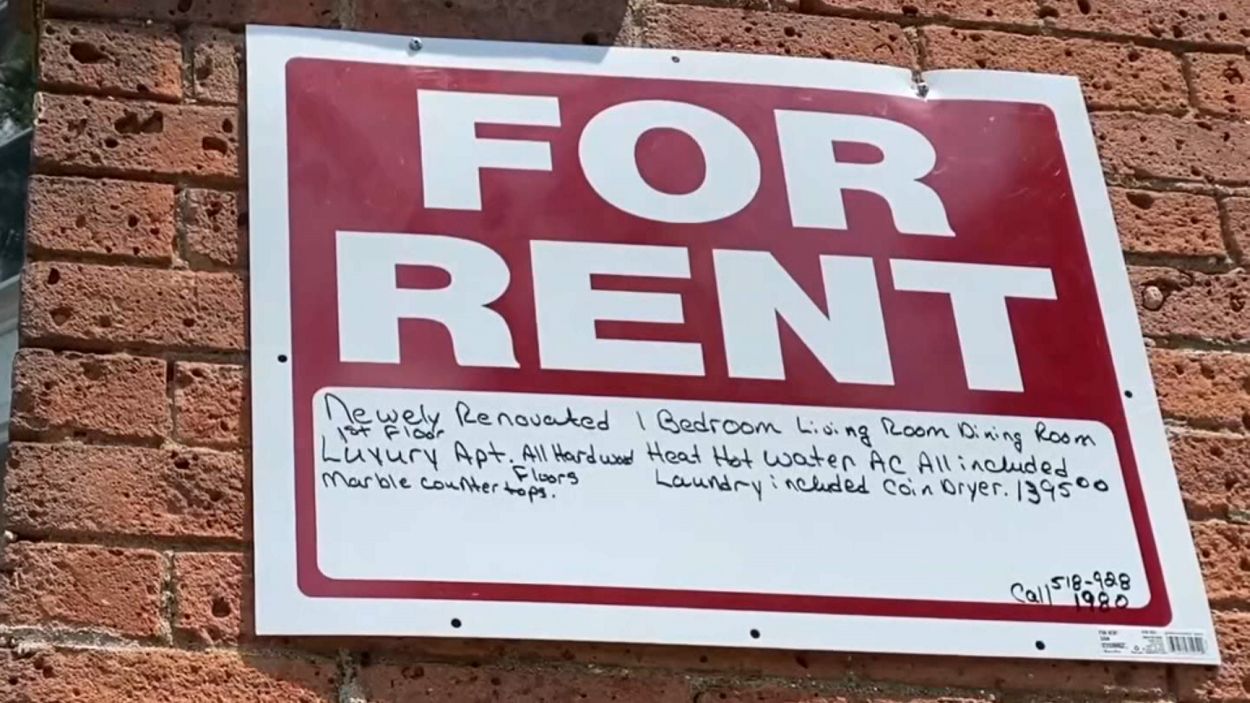 FOR
RENT
Newely Renovated 1 Bedroom Living Room Dining Room
1st Floor
Luxury Apt. All Hardwood Heat Hot Water AC All included
Floors
Marble counter tops. Laundry included Coin Dryer. 1395 00
Call 518-928
1980